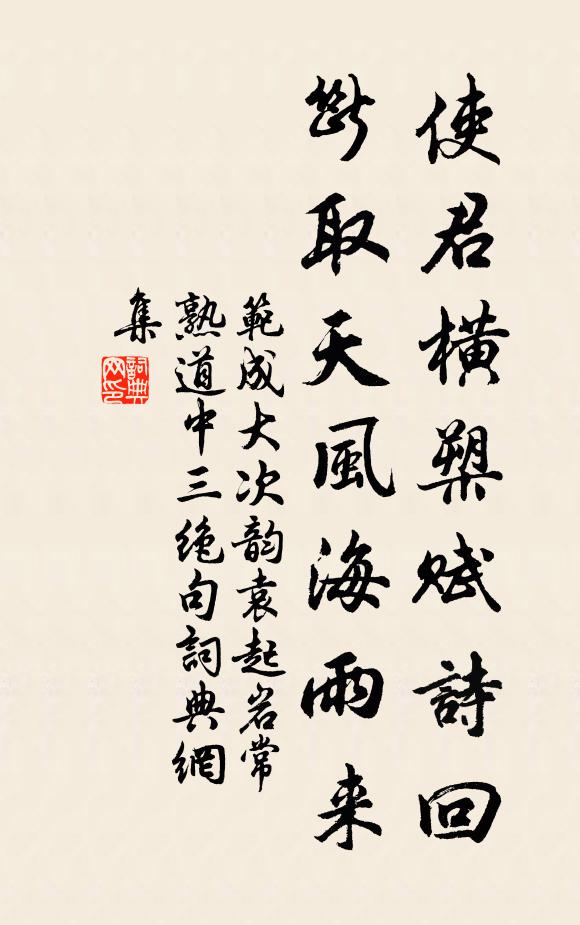 使君橫槊賦詩回
斷取天風海雨来
範成大次韵袁起岩常
熟道中三绝句詞典網
集
詞典網印